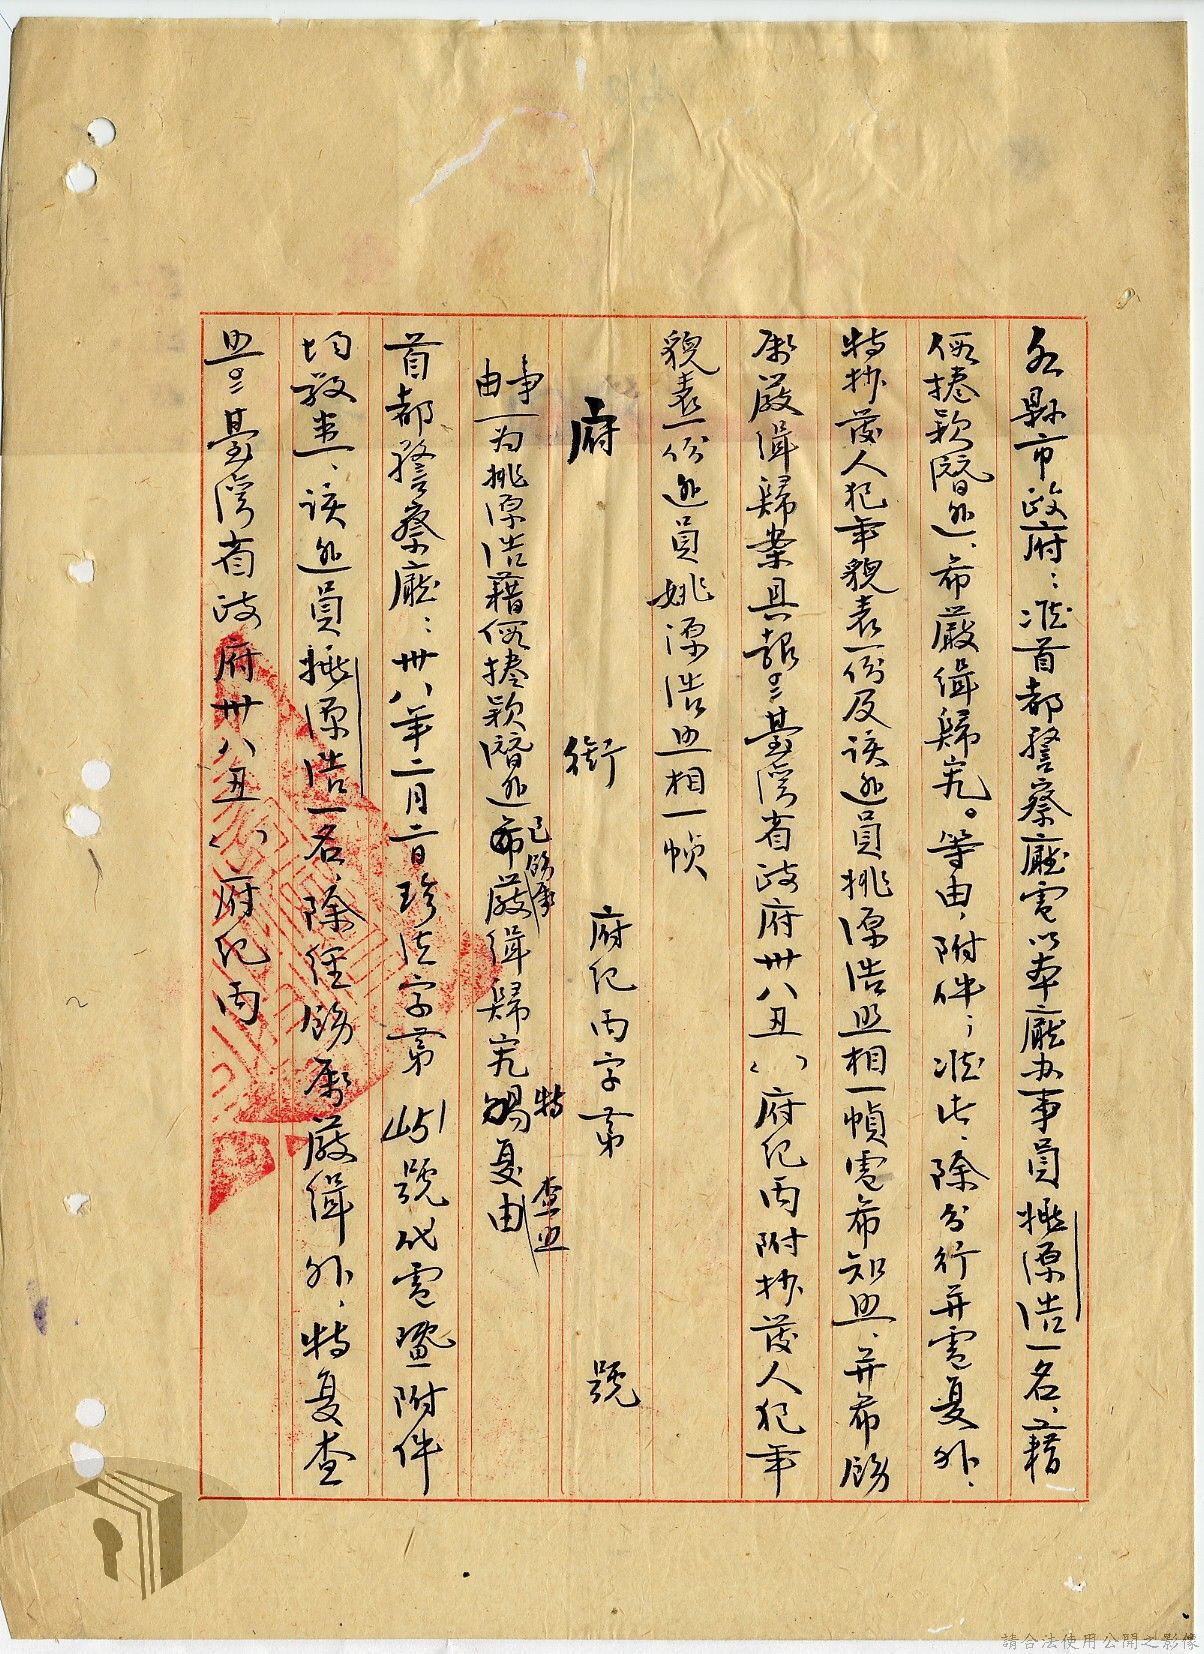 各縣市政府：准首都警察廳電以本廳办事員姚源浩一名、藉
假捲款潛逃、希嚴緝歸究。等由，附件；准此、除分行并電复外、
特抄發人犯年貌表一份及该逃員姚源浩照相一幀電希知照、并希飭
屬嚴緝歸案具報。臺灣省政府卅八丑（）府紀丙附抄發人犯年
貌表一份逃員姚源浩照相一幀
府 銜 府紀丙字第 號
事由 一为姚源浩藉假捲款潛逃希嚴緝歸究 复由
已飭屬
特
查照
首都警察廳：卅八年二月二日珍法字第 號代電暨附件
均敬悉、该逃員姚源浩一名、除經飭屬嚴緝外、特复查
照。臺灣省政府卅八丑（）府紀丙
請合法使用公開之影像